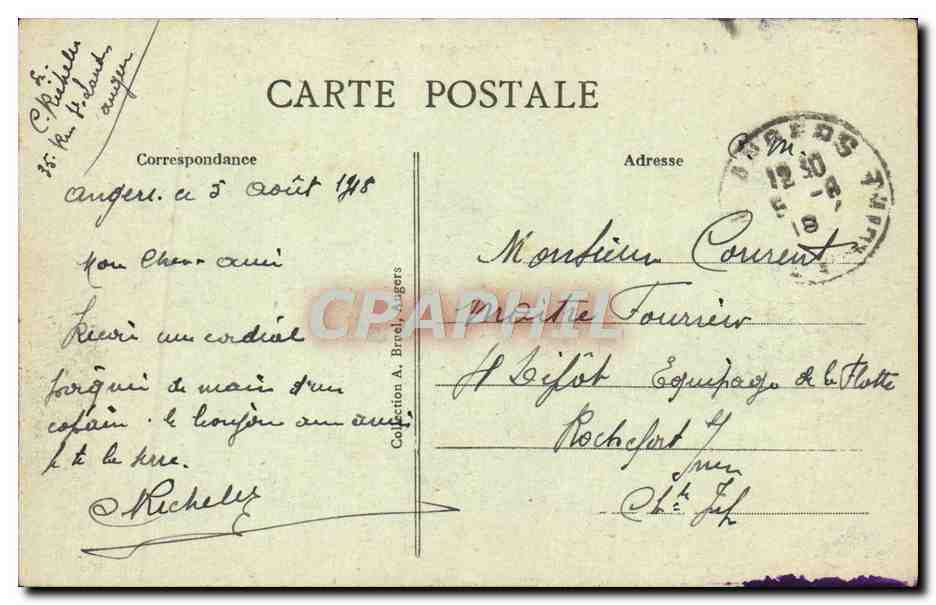 C. Richelez
35. Rue St Laud
Angers
CARTE POSTALE
Correspondance
Adresse
Angers. ce 5 Août 1918
Mon Cher ami
une cordial
poignée de main d'un
copain. le bonjour aux amis
je te la serre.
Richelez
Collection A. Bruel, Angers
ANGERS
12 30
Monsieur Courent
Maitre Fourrier
Dépôt Equipage de la Flotte
Rochefort s/
mer
Ch. te Inf
CPAPHIL